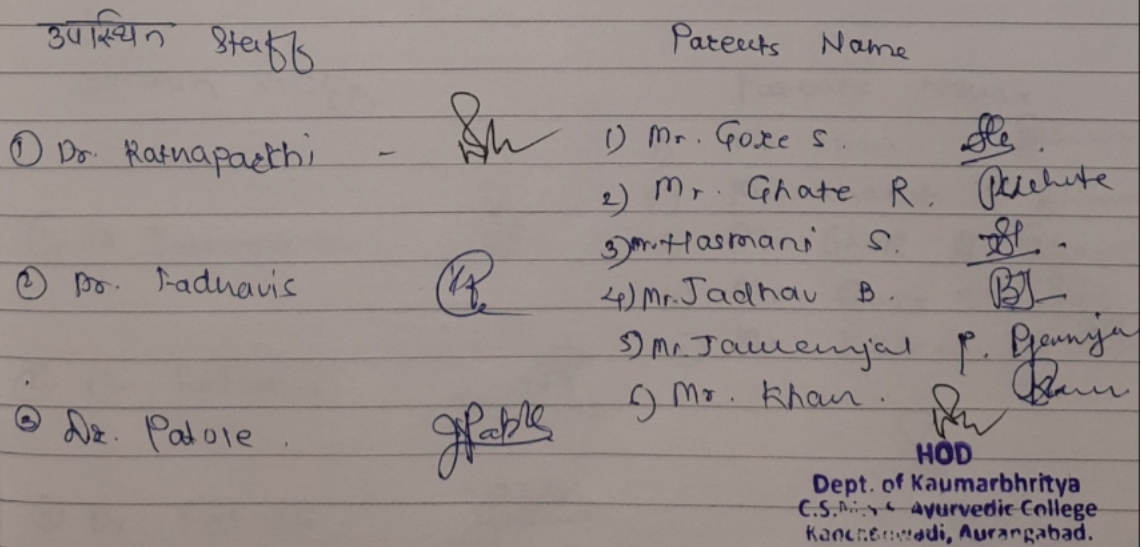 उपस्थित Staff
Parents Name
① Dr. Ratnaparkhi -
② Dr. Fadnavis
③ Dr. Patole.
1) Mr. Gore S.
2) Mr. Ghate R.
3) Mr. Hasmani S.
4) Mr. Jadhav B.
5) Mr. P.
6) Mr. Khan.
HOD
Dept. of Kaumarbhritya
C.S. Ayurvedic College
Kanchanwadi, Aurangabad.